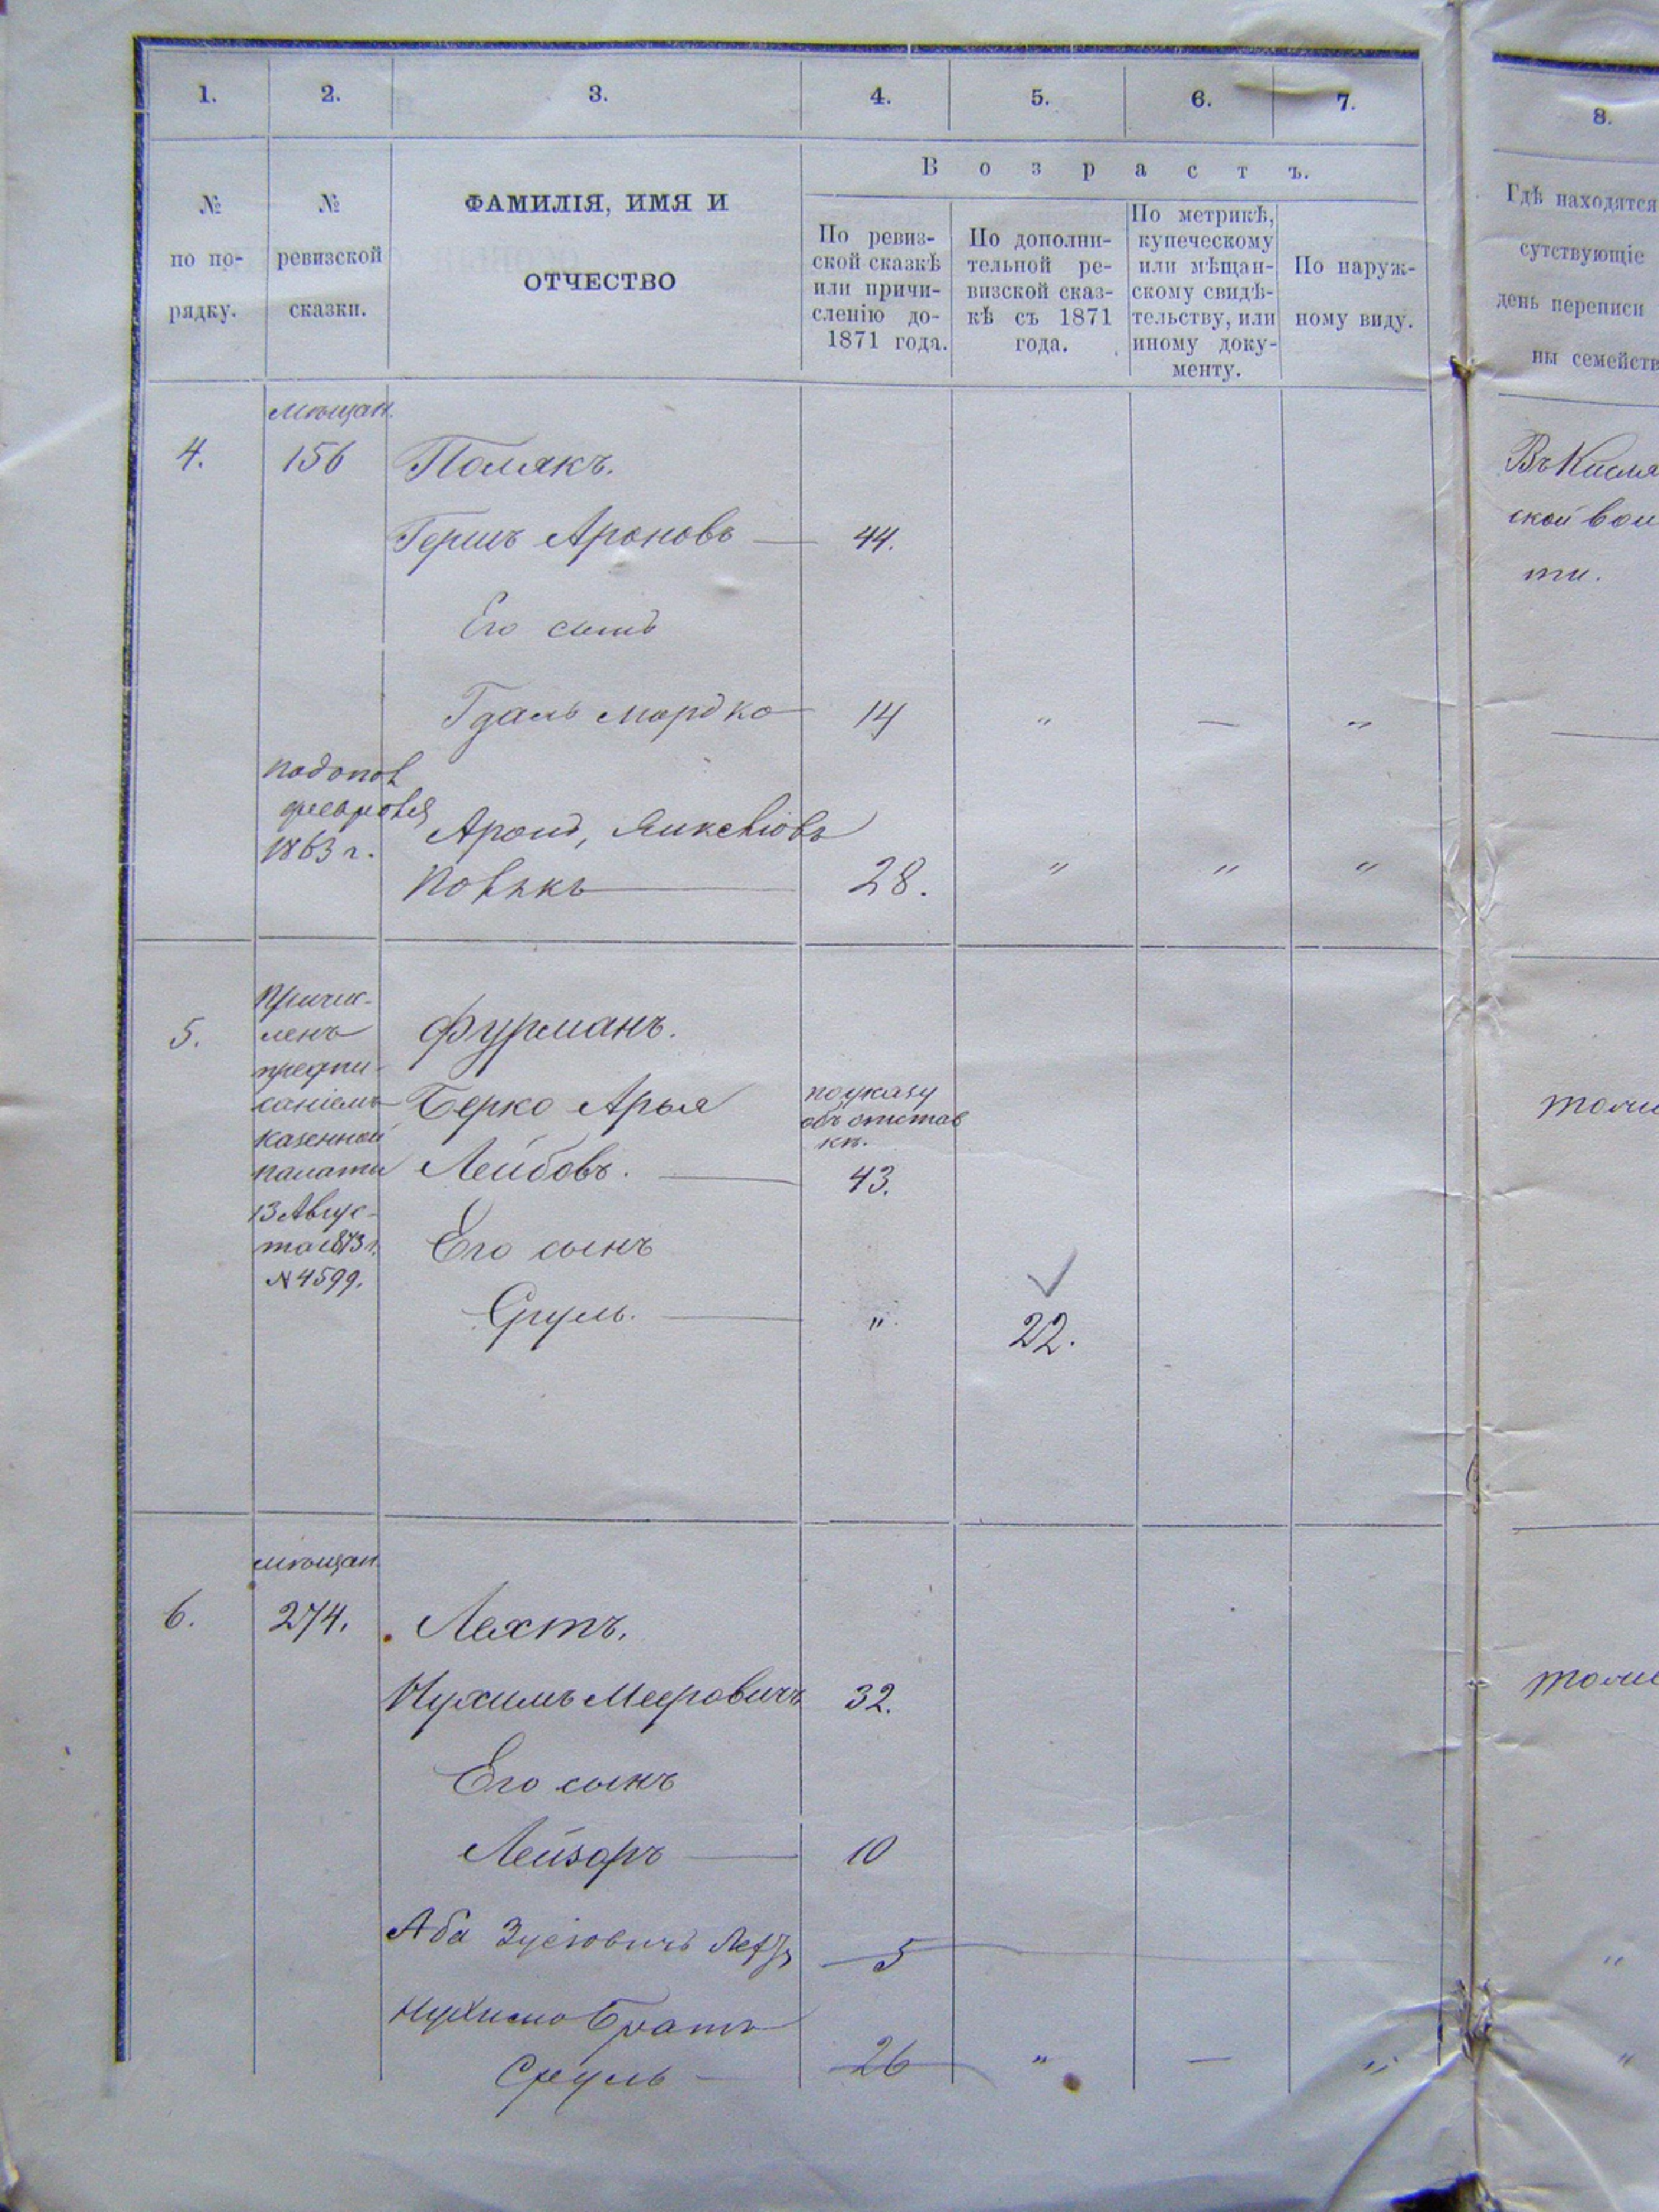 1. 2. 3. 4. 5. 6. 7. 8.
В о з р а с т ъ.
№ по по-рядку.
№ ревизской сказки.
ФАМИЛІЯ, ИМЯ И
ОТЧЕСТВО
По ревиз-
ской сказкѣ
или причи-
сленію до-
1871 года.
По дополни-
тельной ре-
визской сказ-
кѣ съ 1871
года.
По метрикѣ,
купеческому
или мѣщан-
скому свидѣ-
тельству, или
иному доку-
менту.
По наруж-
ному виду.
Гдѣ находятся
сутствующіе
день переписи
ны семейств
мѣщан.
4. 156 Полякъ.
Гершъ Ароновъ — 44.
Его сынъ
Гдаль Мордко — 14 " — "
1863 г.
Аронъ,
28. " " "
5.
Причис-
ленъ
предпи-
саніемъ
казенной
палаты
13 Авгус-
та 1873 г.
N 4599.
Фурманъ.
Берко Арья
Лейбовъ. —
по указу
объ отстав
кѣ.
43.
Его сынъ
Сруль. — " 22.
мѣщан.
6. 274. Лехтъ.
Нухимъ Мееровичъ 32.
Его сынъ
Лейзоръ — 10
Аба 5
Братъ
Сруль — 26 " — "
Въ
ской вол
ти.